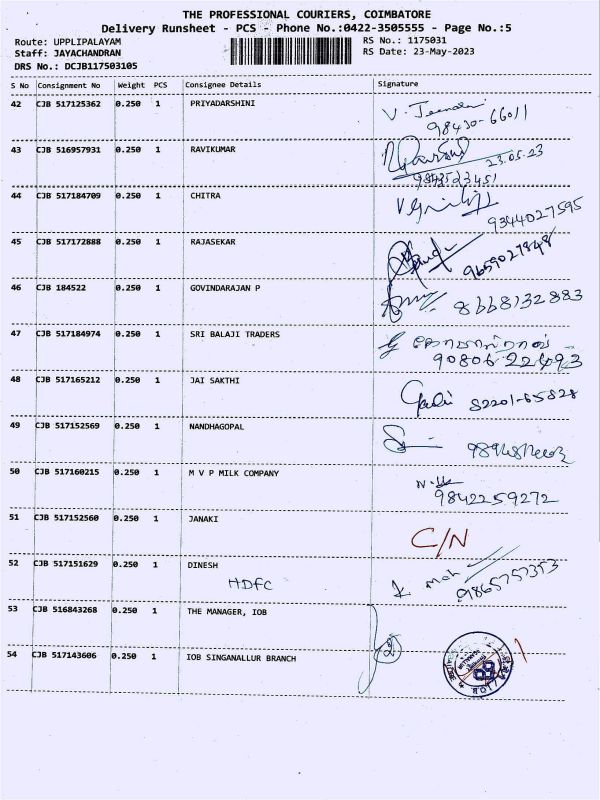 THE PROFESSIONAL COURIERS, COIMBATORE
Delivery Runsheet - PCS - Phone No.:0422-3505555 - Page No.:5
Route: UPPLIPALAYAM RS No.: 1175031
Staff: JAYACHANDRAN RS Date: 23-May-2023
DRS No.: DCJB117503105
S No Consignment No Weight PCS Consignee Details Signature
42 CJB 517125362 0.250 1 PRIYADARSHINI
98430-66011
43 CJB 516957931 0.250 1 RAVIKUMAR
23.05.23
9843523451
44 CJB 517184709 0.250 1 CHITRA
9344027595
45 CJB 517172888 0.250 1 RAJASEKAR
9659027848
46 CJB 184522 0.250 1 GOVINDARAJAN P 8668132883
47 CJB 517184974 0.250 1 SRI BALAJI TRADERS
90806-22493
48 CJB 517165212 0.250 1 JAI SAKTHI 82201-65828
49 CJB 517152569 0.250 1 NANDHAGOPAL
50 CJB 517160215 0.250 1 M V P MILK COMPANY
9842259272
51 CJB 517152560 0.250 1 JANAKI
C/N
52 CJB 517151629 0.250 1 DINESH
HDFC 9865757353
53 CJB 516843268 0.250 1 THE MANAGER, IOB
2
54 CJB 517143606 0.250 1 IOB SINGANALLUR BRANCH